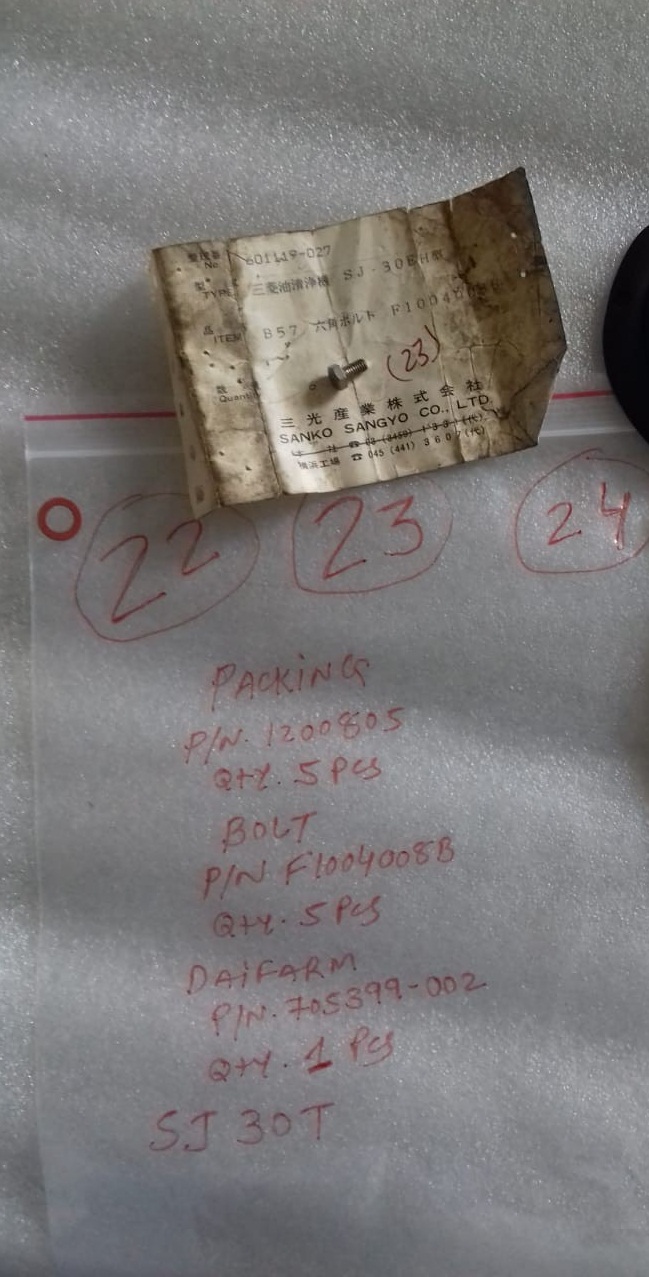 整理番
No. 601119-027
型
TYPE 三菱油清浄機 SJ-30EH型
品
ITEM B57 六角ボルト
数
Quantity 6
(23)
三光産業株式会社
SANKO SANGYO CO., LTD.
本社 ☎ 03 (3459)
横浜工場 ☎ 045 (441) 3607(代)
22 23 24
PACKING
P/N. 1200805
QTY. 5 PCS
BOLT
P/N F1004008B
QTY. 5 PCS
DAIFARM
P/N. 705399-002
QTY. 1 PCS
SJ 30T